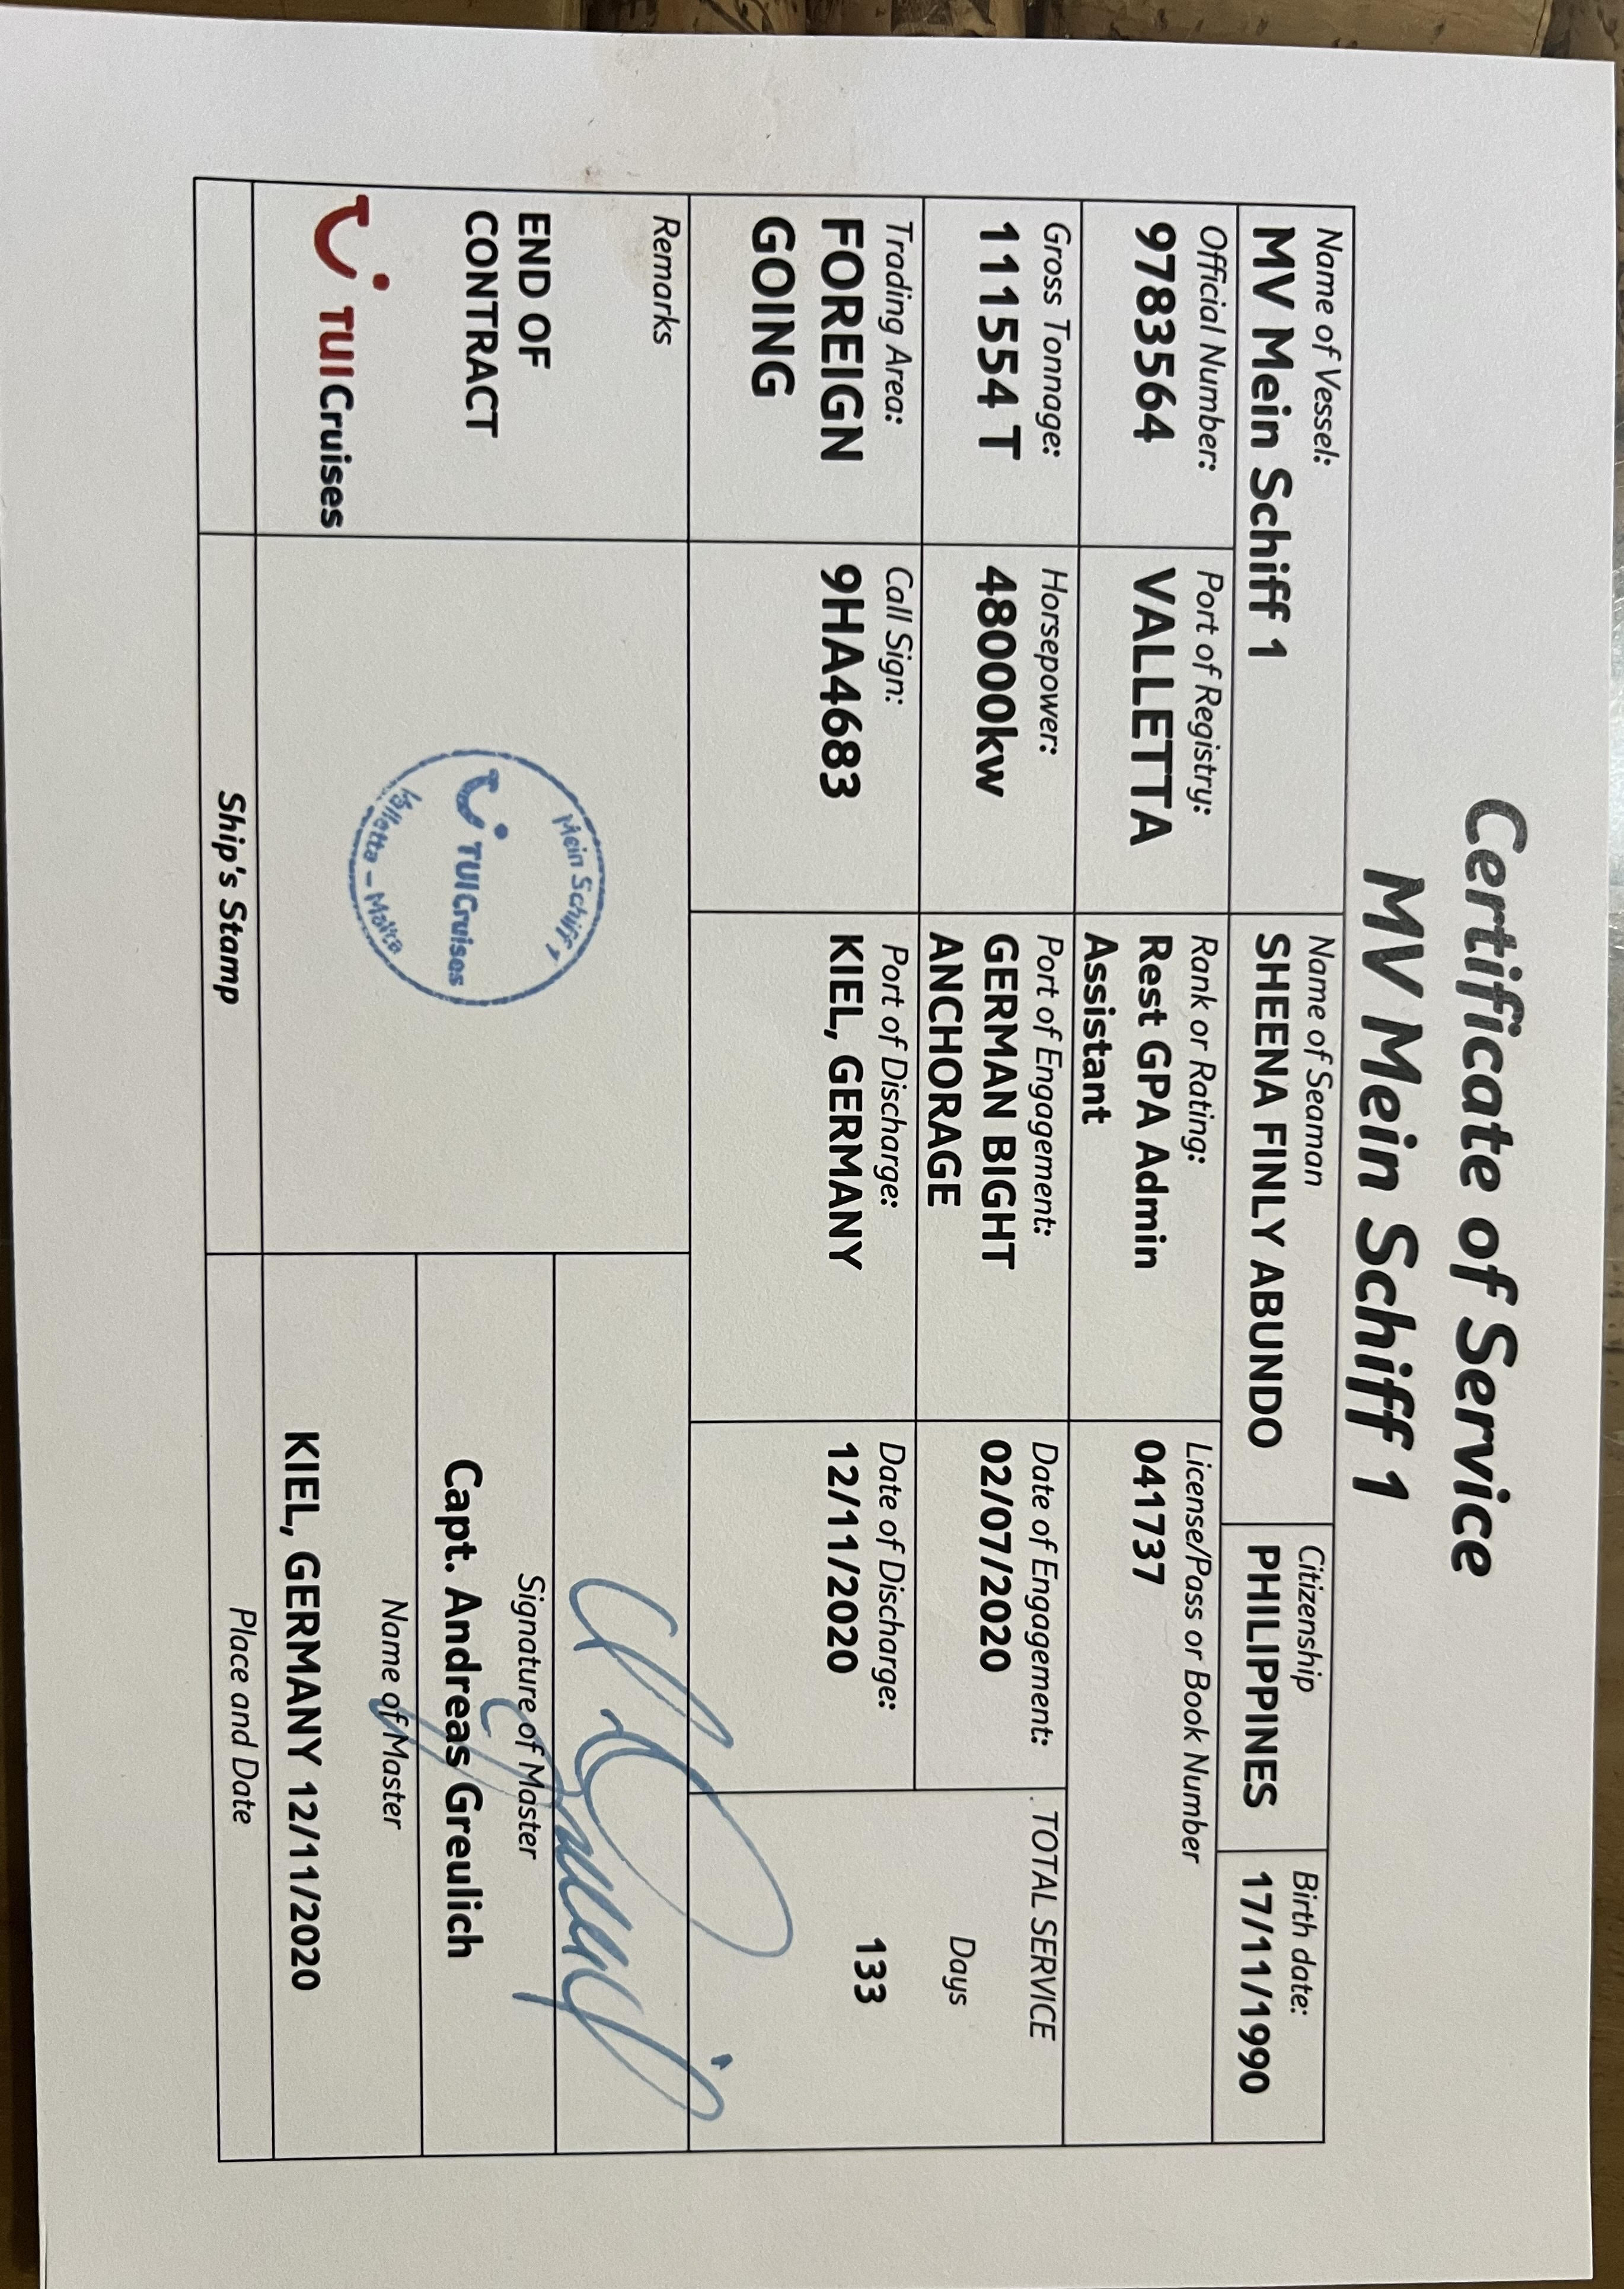 Certificate of Service
MV Mein Schiff 1
Name of Vessel:
MV Mein Schiff 1
Name of Seaman
SHEENA FINLY ABUNDO
Citizenship
PHILIPPINES
Birth date:
17/11/1990
Official Number:
9783564
Port of Registry:
VALLETTA
Rank or Rating:
Rest GPA Admin
Assistant
License/Pass or Book Number
041737
Gross Tonnage:
111554 T
Horsepower:
48000kw
Port of Engagement:
GERMAN BIGHT
ANCHORAGE
Date of Engagement:
02/07/2020
. TOTAL SERVICE
Days
133
Trading Area:
FOREIGN
GOING
Call Sign:
9HA4683
Port of Discharge:
KIEL, GERMANY
Date of Discharge:
12/11/2020
Remarks
END OF
CONTRACT
TUI Cruises
Mein Schiff 1
TUI Cruises
Valletta – Malta
Ship's Stamp
Signature of Master
Capt. Andreas Greulich
Name of Master
KIEL, GERMANY 12/11/2020
Place and Date